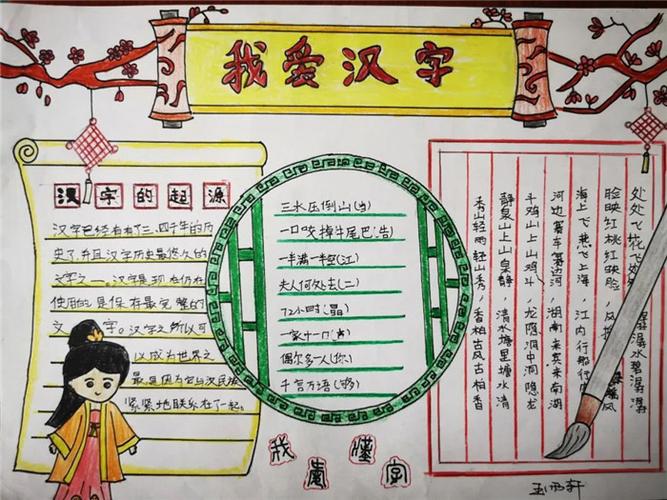 我爱汉字
汉字的起源
汉字已经有有了三、四千年的历
史了,并且汉字历史最悠久的
文字之一。汉字是现在仍在
使用的是保存最完整的
文字。汉字之所以可
以成为世界之
最是因为它与汉民族
紧紧地联系在了一起。
三水压倒山(当)
一口咬掉牛尾巴(告)
一半满一半空(江)
夫人何处去(二)
72小时(晶)
一家十一口(吉)
偶尔多人(你)
千言万语(够)
处处飞花飞处处,潺潺水碧潺潺
脸映红桃红映脸,风
海上飞燕飞上海,江内行那行
河边赛车赛边河,湖南来宾来南湖
斗鸡山上山鸡斗,龙隐洞中洞隐龙
静泉山上山泉静,清水塘里塘水清
秀山轻雨轻山秀,香柏古风古柏香
我
懂
字
王雨轩